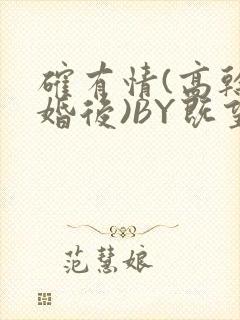 確有情(高幹
婚後)BY既
范慧娘